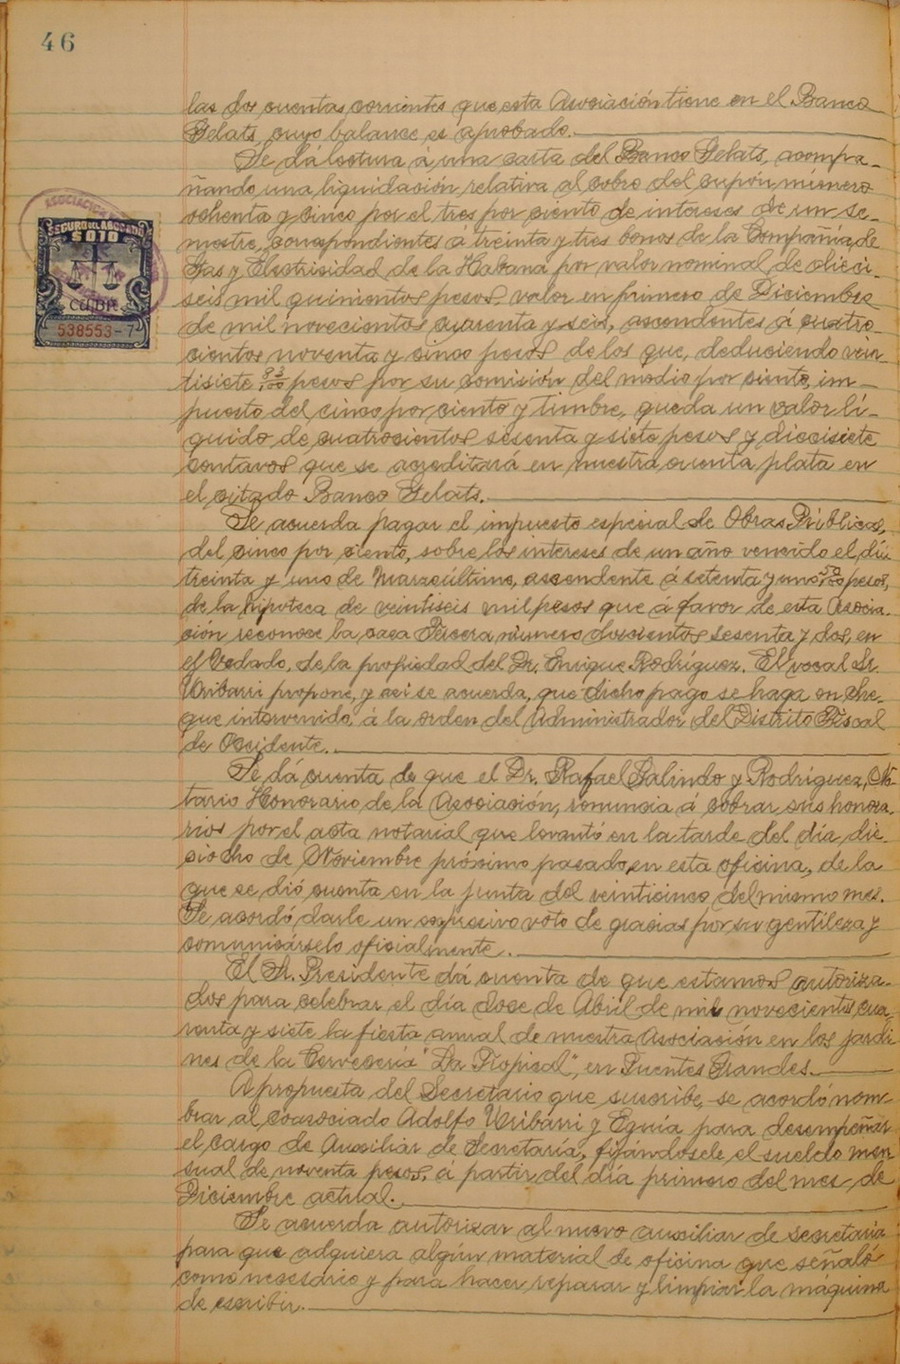 46
las dos cuentas corrientes que esta Asociación tiene en el Banco
Gelats, cuyo balance es aprobado.
Se dá lectura á una carta del Banco Gelats, acompa-
ñando una liquidación relativa al cobro del cupón número
ochenta y cinco por el tres por ciento de intereses de un se-
mestre, correspondientes á treinta y tres bonos de la Compañía de
Gas y Electrisidad de la Habana por valor nominal de dieci-
seis mil quinientos pesos, valor en primero de Diciembre
de mil novecientos cuarenta y seis, ascendentes á cuatro-
cientos noventa y cinco pesos de los que, deduciendo vein-
tisiete 83/100 pesos por su comisión del medio por siento, im-
puesto del cinco por ciento y timbre, queda un valor lí-
quido de cuatrocientos sesenta y siete pesos y diecisiete
centavos que se acreditará en nuestra cuenta plata en
el citado Banco Gelats.
Se acuerda pagar el impuesto especial de Obras Públicas,
del cinco por ciento, sobre los intereses de un año vencido el día
treinta y uno de Marzo último, ascendente á setenta y uno 50/100 pesos,
de la hipoteca de veintiseis mil pesos que á favor de esta Asocia-
ción reconoce la casa Tercera número doscientos sesenta y dos, en
el Vedado, de la propiedad del Dr. Enrique Rodríguez. El vocal Sr.
Uribarri propone, y asi se acuerda, que dicho pago se haga en che-
que intervenido, á la orden del Administrador del Distrito Fiscal
de Occidente.
Se dá cuenta de que el Dr. Rafael Galindo y Rodríguez, No-
tario Honorario de la Asociación, renuncia á cobrar sus honora-
rios por el acta notarial que levantó en la tarde del día die-
ciocho de Noviembre próximo pasado, en esta oficina, de la
que se dió cuenta en la junta del veinticinco del mismo mes.
Se acordó darle un expresivo voto de gracias por su gentileza y
comunicárselo oficialmente.
El Sr. Presidente dá cuenta de que estamos autoriza-
dos para celebrar el día doce de Abril de mil novecientos cua-
renta y siete la fiesta anual de nuestra Asociación en los jardi-
nes de la Cervecería "La Tropical", en Puentes Grandes.
A propuesta del Secretario que suscribe, se acordó nom-
brar al coasociado Adolfo Uribarri y Eguía para desempeñar
el cargo de Auxiliar de Secretaría, fijándosele el sueldo men-
sual de noventa pesos, á partir del día primero del mes de
Diciembre actual.
Se acuerda autorizar al nuevo auxiliar de secretaría
para que adquiera algún material de oficina que señaló
como nesesario y para hacer reparar y limpiar la máquina
de escribir.
SEGURO DEL ABOGADO
$0.10
CUBA
538553-7